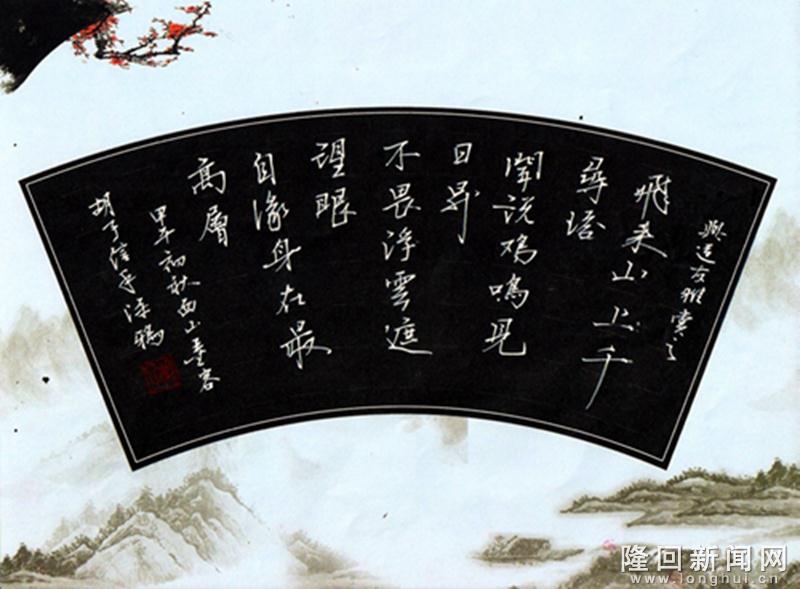 友雅賞之
飛来山上千
尋塔
聞説鸡鳴見
日昇
不畏浮雲遮
望眼
自缘身在最
高層
甲午初秋西山墨客
胡子信手涂鸦
隆回新闻网
www.longhui.cn